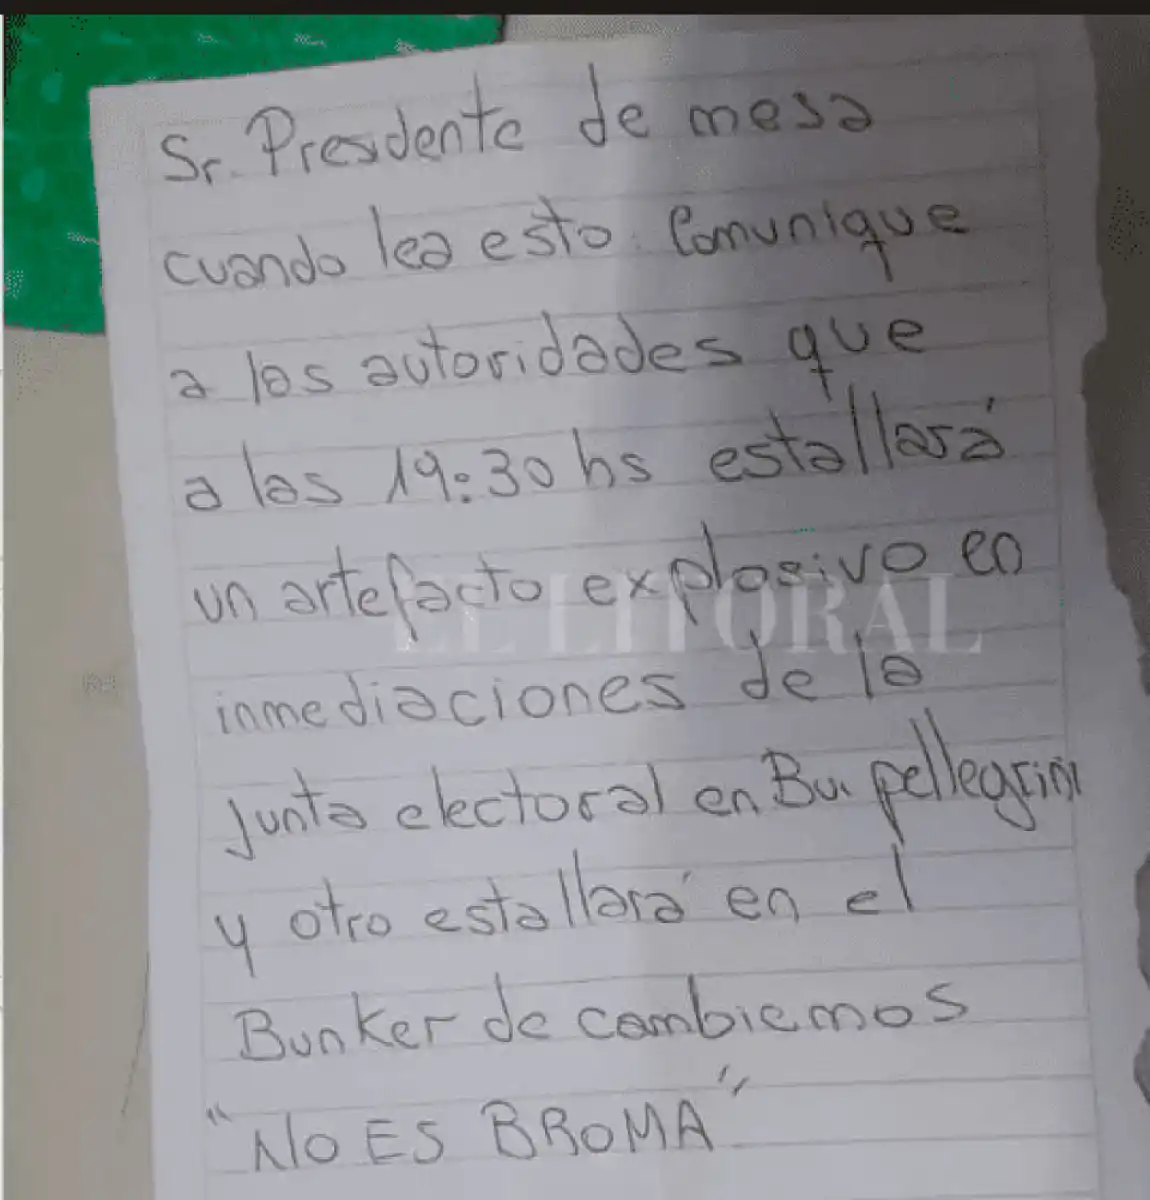 Sr. Presdente de mesa
cuando lea esto Comunique
a las autoridades que
a las 19:30 hs estallará
un artefacto explosivo en
EL LITORAL
inmediaciones de la
Junta electoral en Bu. pellegrini
y otro estallará en el
Bunker de cambiemos
"NO ES BROMA"